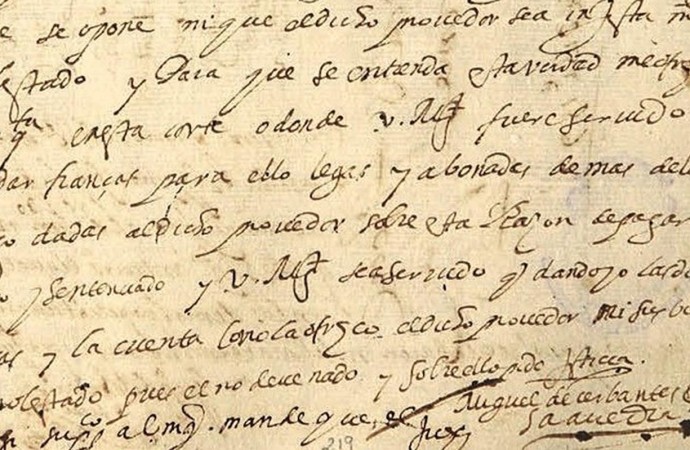 e se opone ni que al dicho proveedor sea
estado y Para que se entienda esta verdad me ofrez
en esta corte o donde v. Mgt fuere servido
dar fianças para ello legas y abonadas demas de l
dadas al dicho proveedor sobre esta Razon de pagar
y sentenciado y v. Mgt sea servido q dando yo las d
as y la cuenta como la ofrezco al dicho proveedor
molestado pues el no deve nado y sobre ello pido justicia.
supco a l. mgt. mande que el Juez
Miguel de cerbantes
Saavedra
219